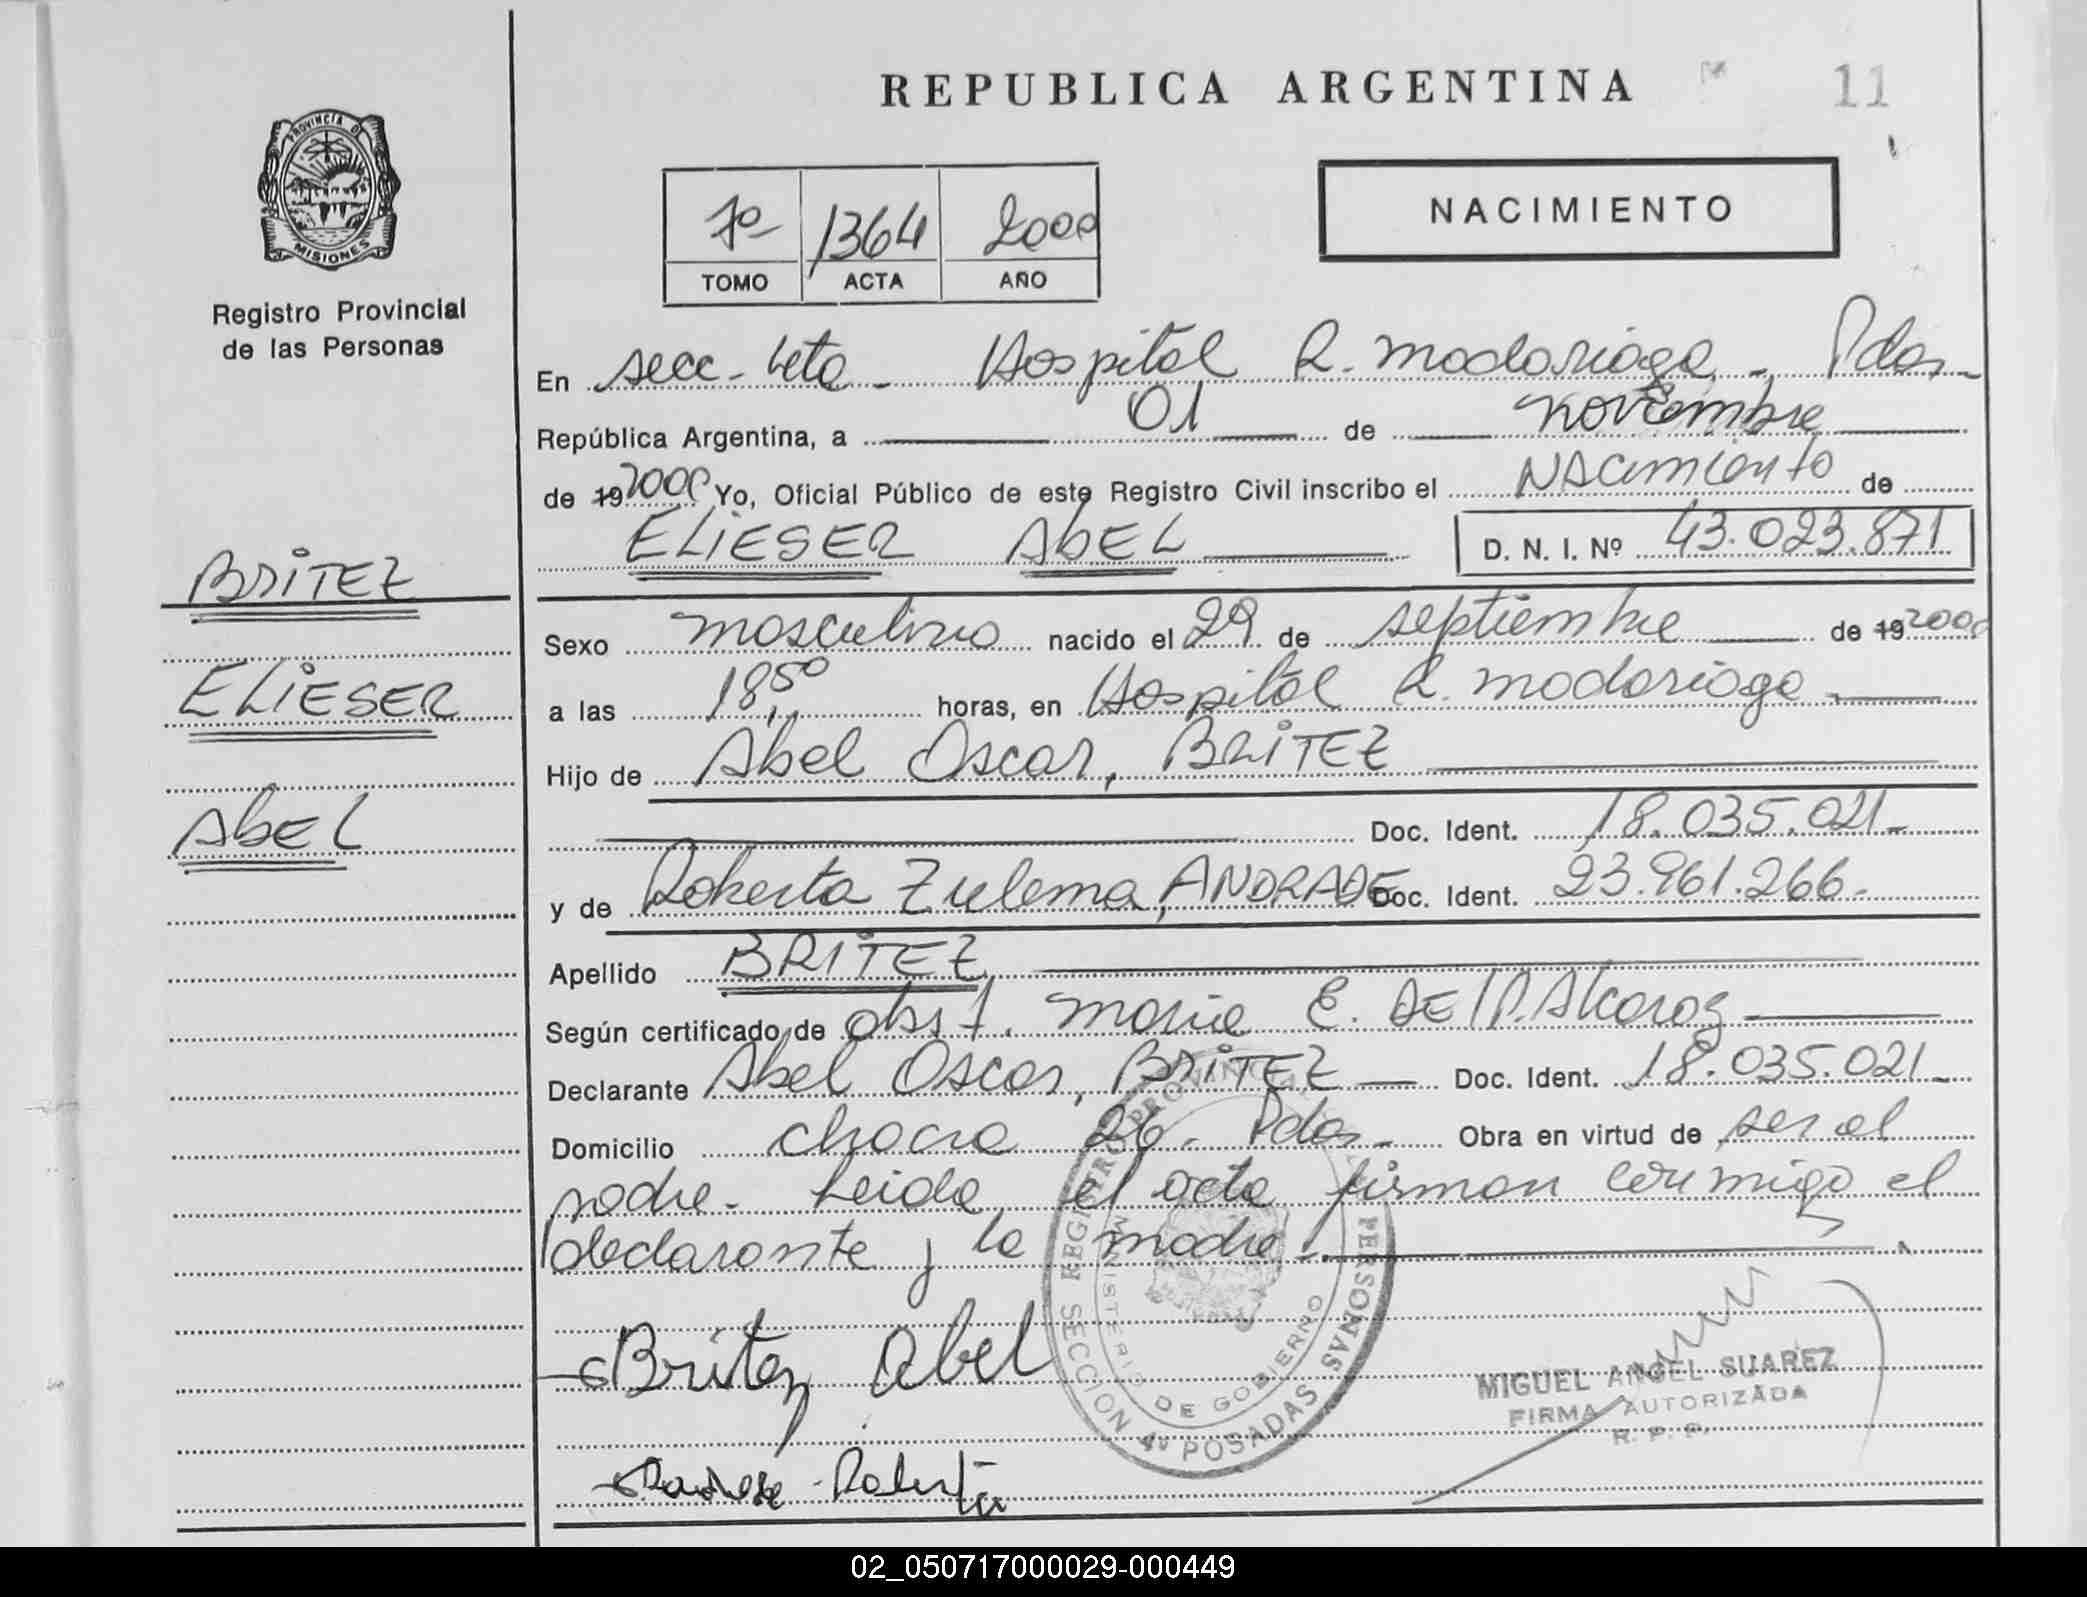 REPUBLICA ARGENTINA
11
PROVINCIA DE
MISIONES
Registro Provincial
de las Personas
1364 2000
TOMO ACTA AÑO
NACIMIENTO
En secc. Hospital R. Madariaga Pdas
República Argentina, a 01 de noviembre
de 19 2000 Yo, Oficial Público de este Registro Civil inscribo el NAcimiento de
ELiESER AbEL D. N. I. Nº 43.023.871
BRiTEZ
ELiESER
AbEL
Sexo masculino nacido el 29 de septiembre de 19 2000
a las 18,50 horas, en Hospital R. Madariaga
Hijo de Abel Oscar, BRiTEZ
Doc. Ident. 18.035.021-
y de Roberta Zulema, ANDRADE Doc. Ident. 23.961.266.
Apellido BRiTEZ
Según certificado de obst. Maria E. DE Alcaraz
Declarante Abel Oscar, BRiTEZ Doc. Ident. 18.035.021-
Domicilio chacra 26. Pdas- Obra en virtud de ser el
padre. Leida el acta firman conmigo el
declarante y la madre
Britez Abel
Roberta
REGISTRO PROVINCIAL PERSONAS
MINISTERIO DE GOBIERNO
SECCION 4ª POSADAS
MIGUEL ANGEL SUAREZ
FIRMA AUTORIZADA
R. P. P.
02_050717000029-000449